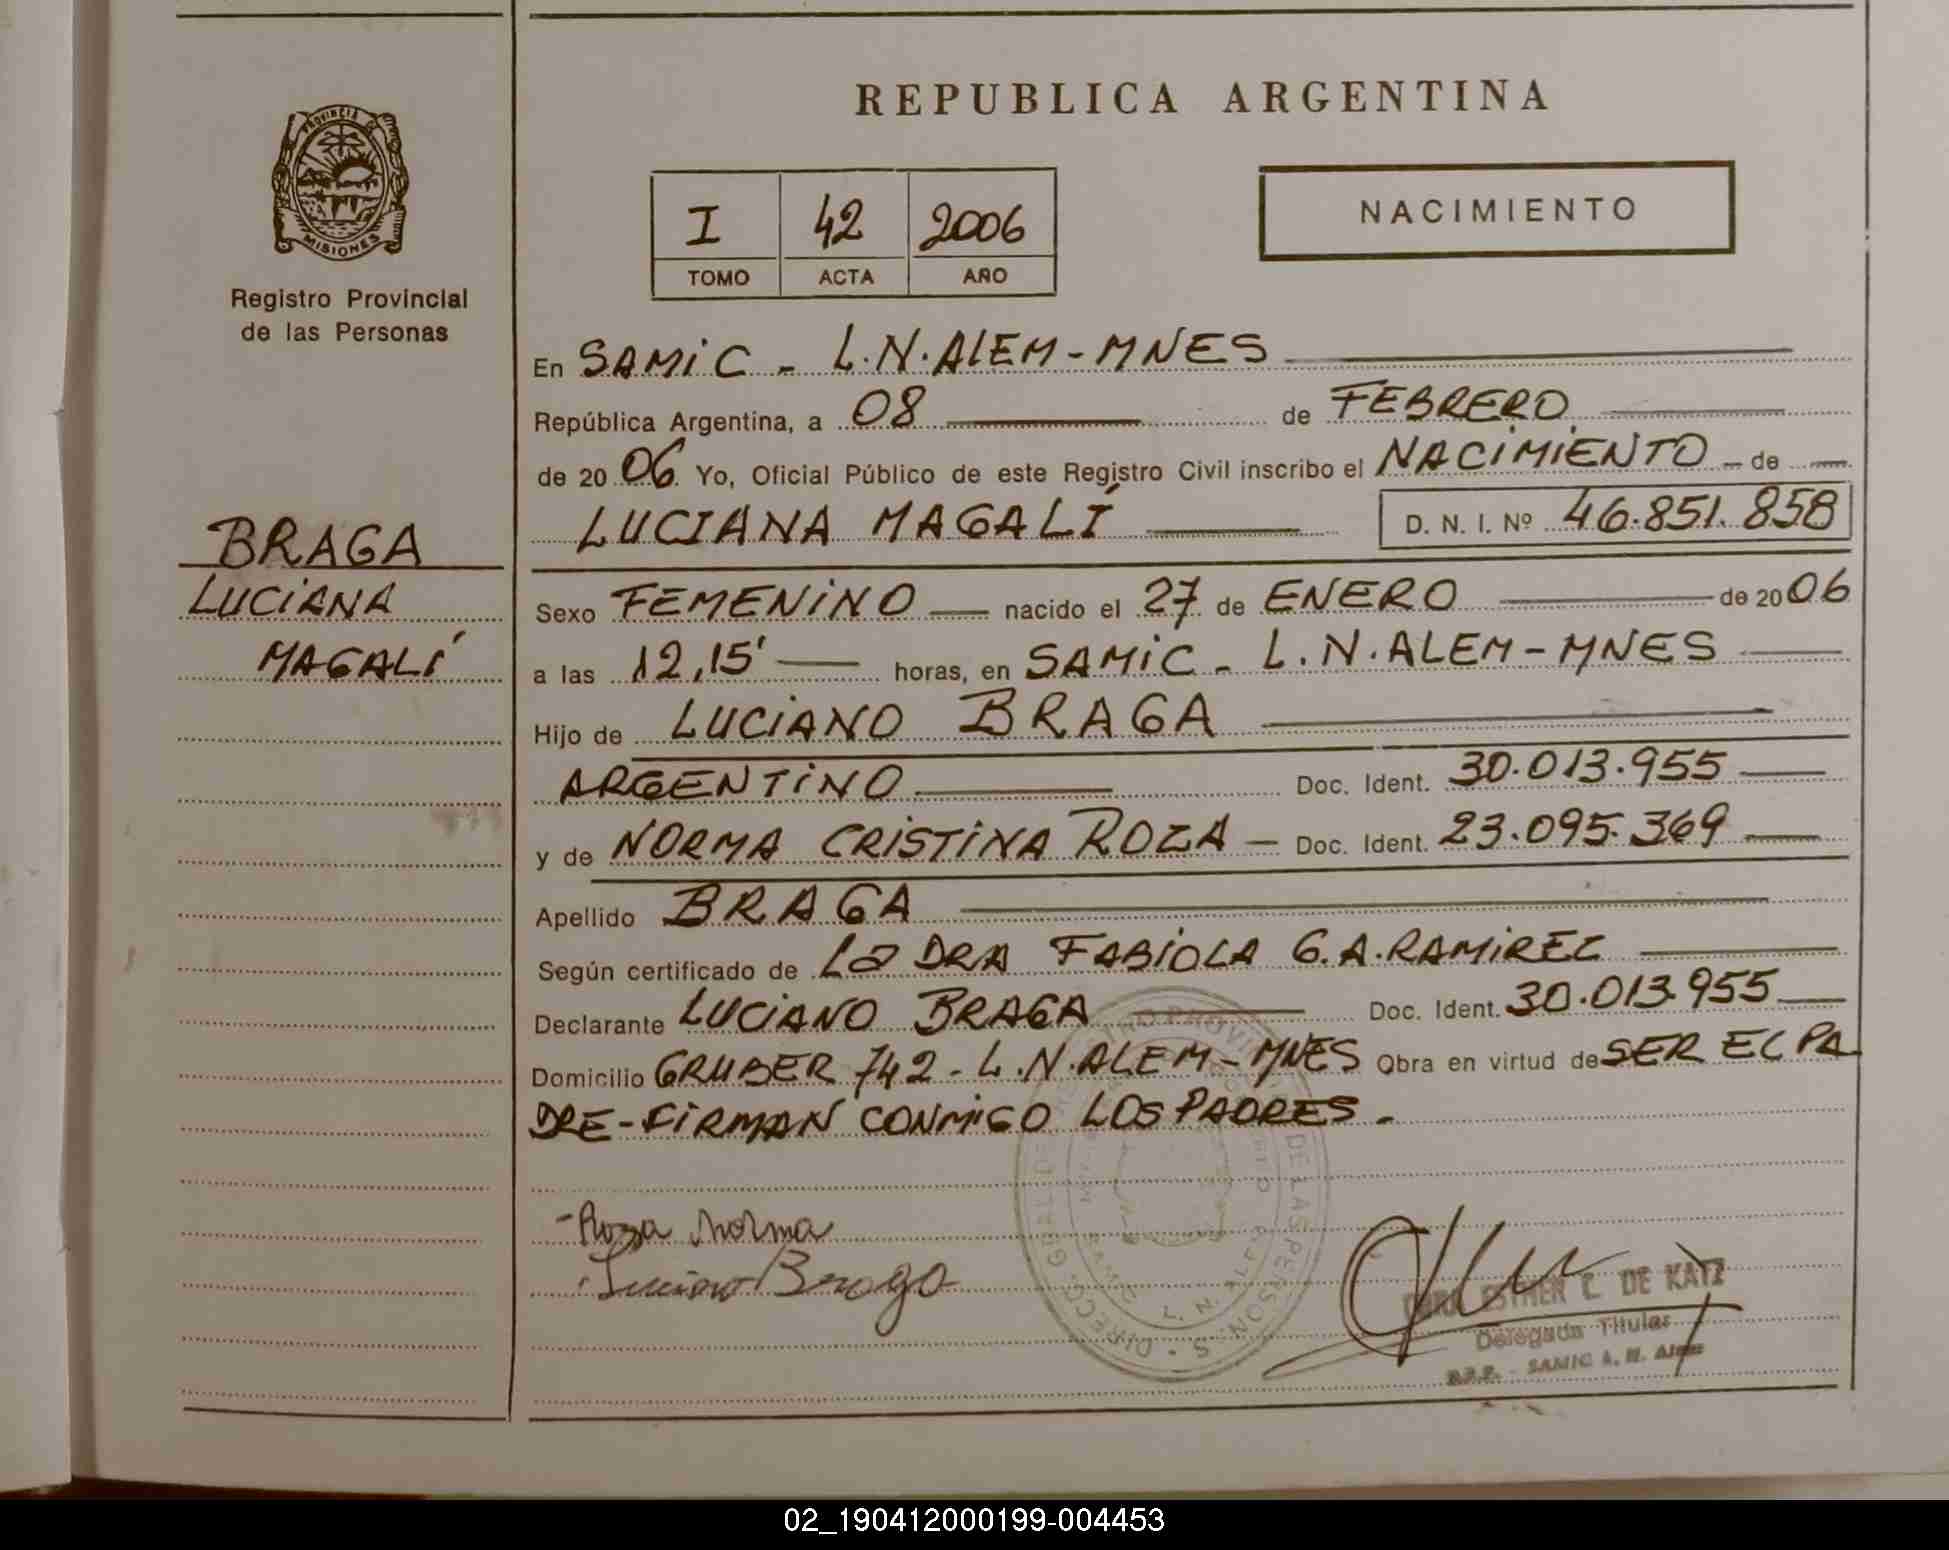 REPUBLICA ARGENTINA
PROVINCIA DE
MISIONES
Registro Provincial
de las Personas
I 42 2006
TOMO ACTA AÑO
NACIMIENTO
En SAMIC - L.N. ALEM - MNES
República Argentina, a 08 de FEBRERO
de 2006 Yo, Oficial Público de este Registro Civil inscribo el NACIMIENTO - de
LUCIANA MAGALÍ D. N. I. Nº 46.851.858
BRAGA
LUCIANA
MAGALÍ
Sexo FEMENINO nacido el 27 de ENERO de 2006
a las 12,15' horas, en SAMIC - L.N. ALEM - MNES
Hijo de LUCIANO BRAGA
ARGENTINO Doc. Ident. 30.013.955
y de NORMA CRISTINA ROZA - Doc. Ident. 23.095.369
Apellido BRAGA
Según certificado de La DRA FABIOLA G.A. RAMIREZ
Declarante LUCIANO BRAGA Doc. Ident. 30.013.955
Domicilio GRUBER 742 - L.N. ALEM - MNES Obra en virtud de SER EL PA
DRE - FIRMAN CONMIGO LOS PADRES.
- Roza Norma
Luciano Braga
ESTHER C. DE KATZ
Delegada Titular
R.P.P. - SAMIC L. N. Alem
02_190412000199-004453